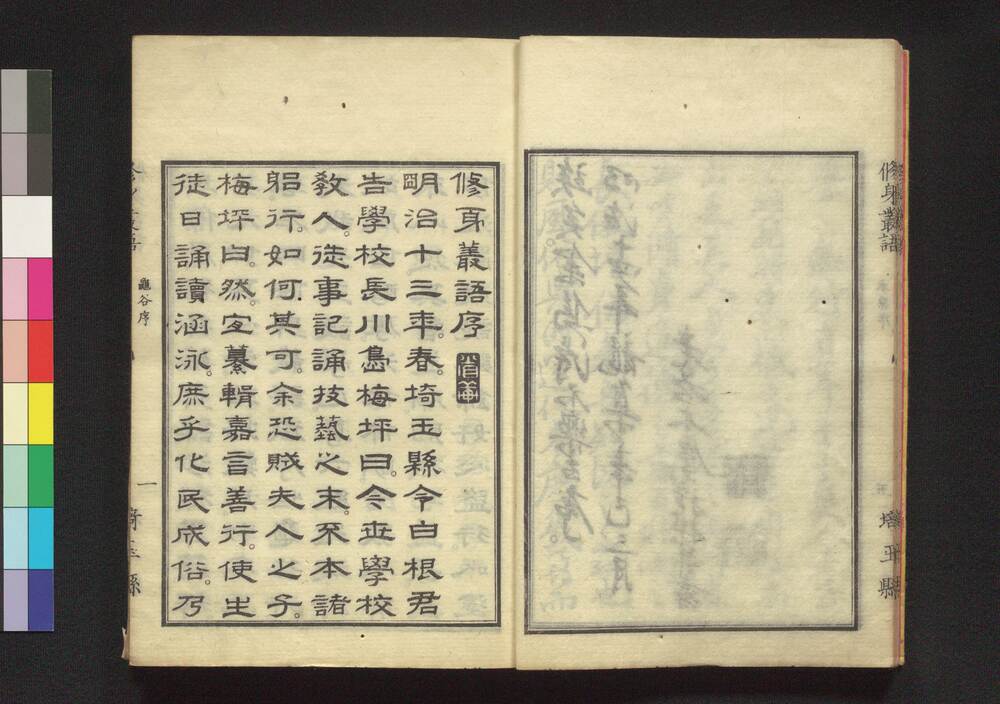 修身叢語
埼玉縣
修身叢語序
明治十三年。春。埼玉縣令白根君
告學校長川島梅坪曰。令世學校
敎人。徒事記誦技藝之末。不本諸
躬行。如何其可。余恐賊夫人之子。
梅坪曰。然。宜纂輯嘉言善行。使生
徒日誦讀涵泳。庶乎化民成俗。乃
龜谷序
一